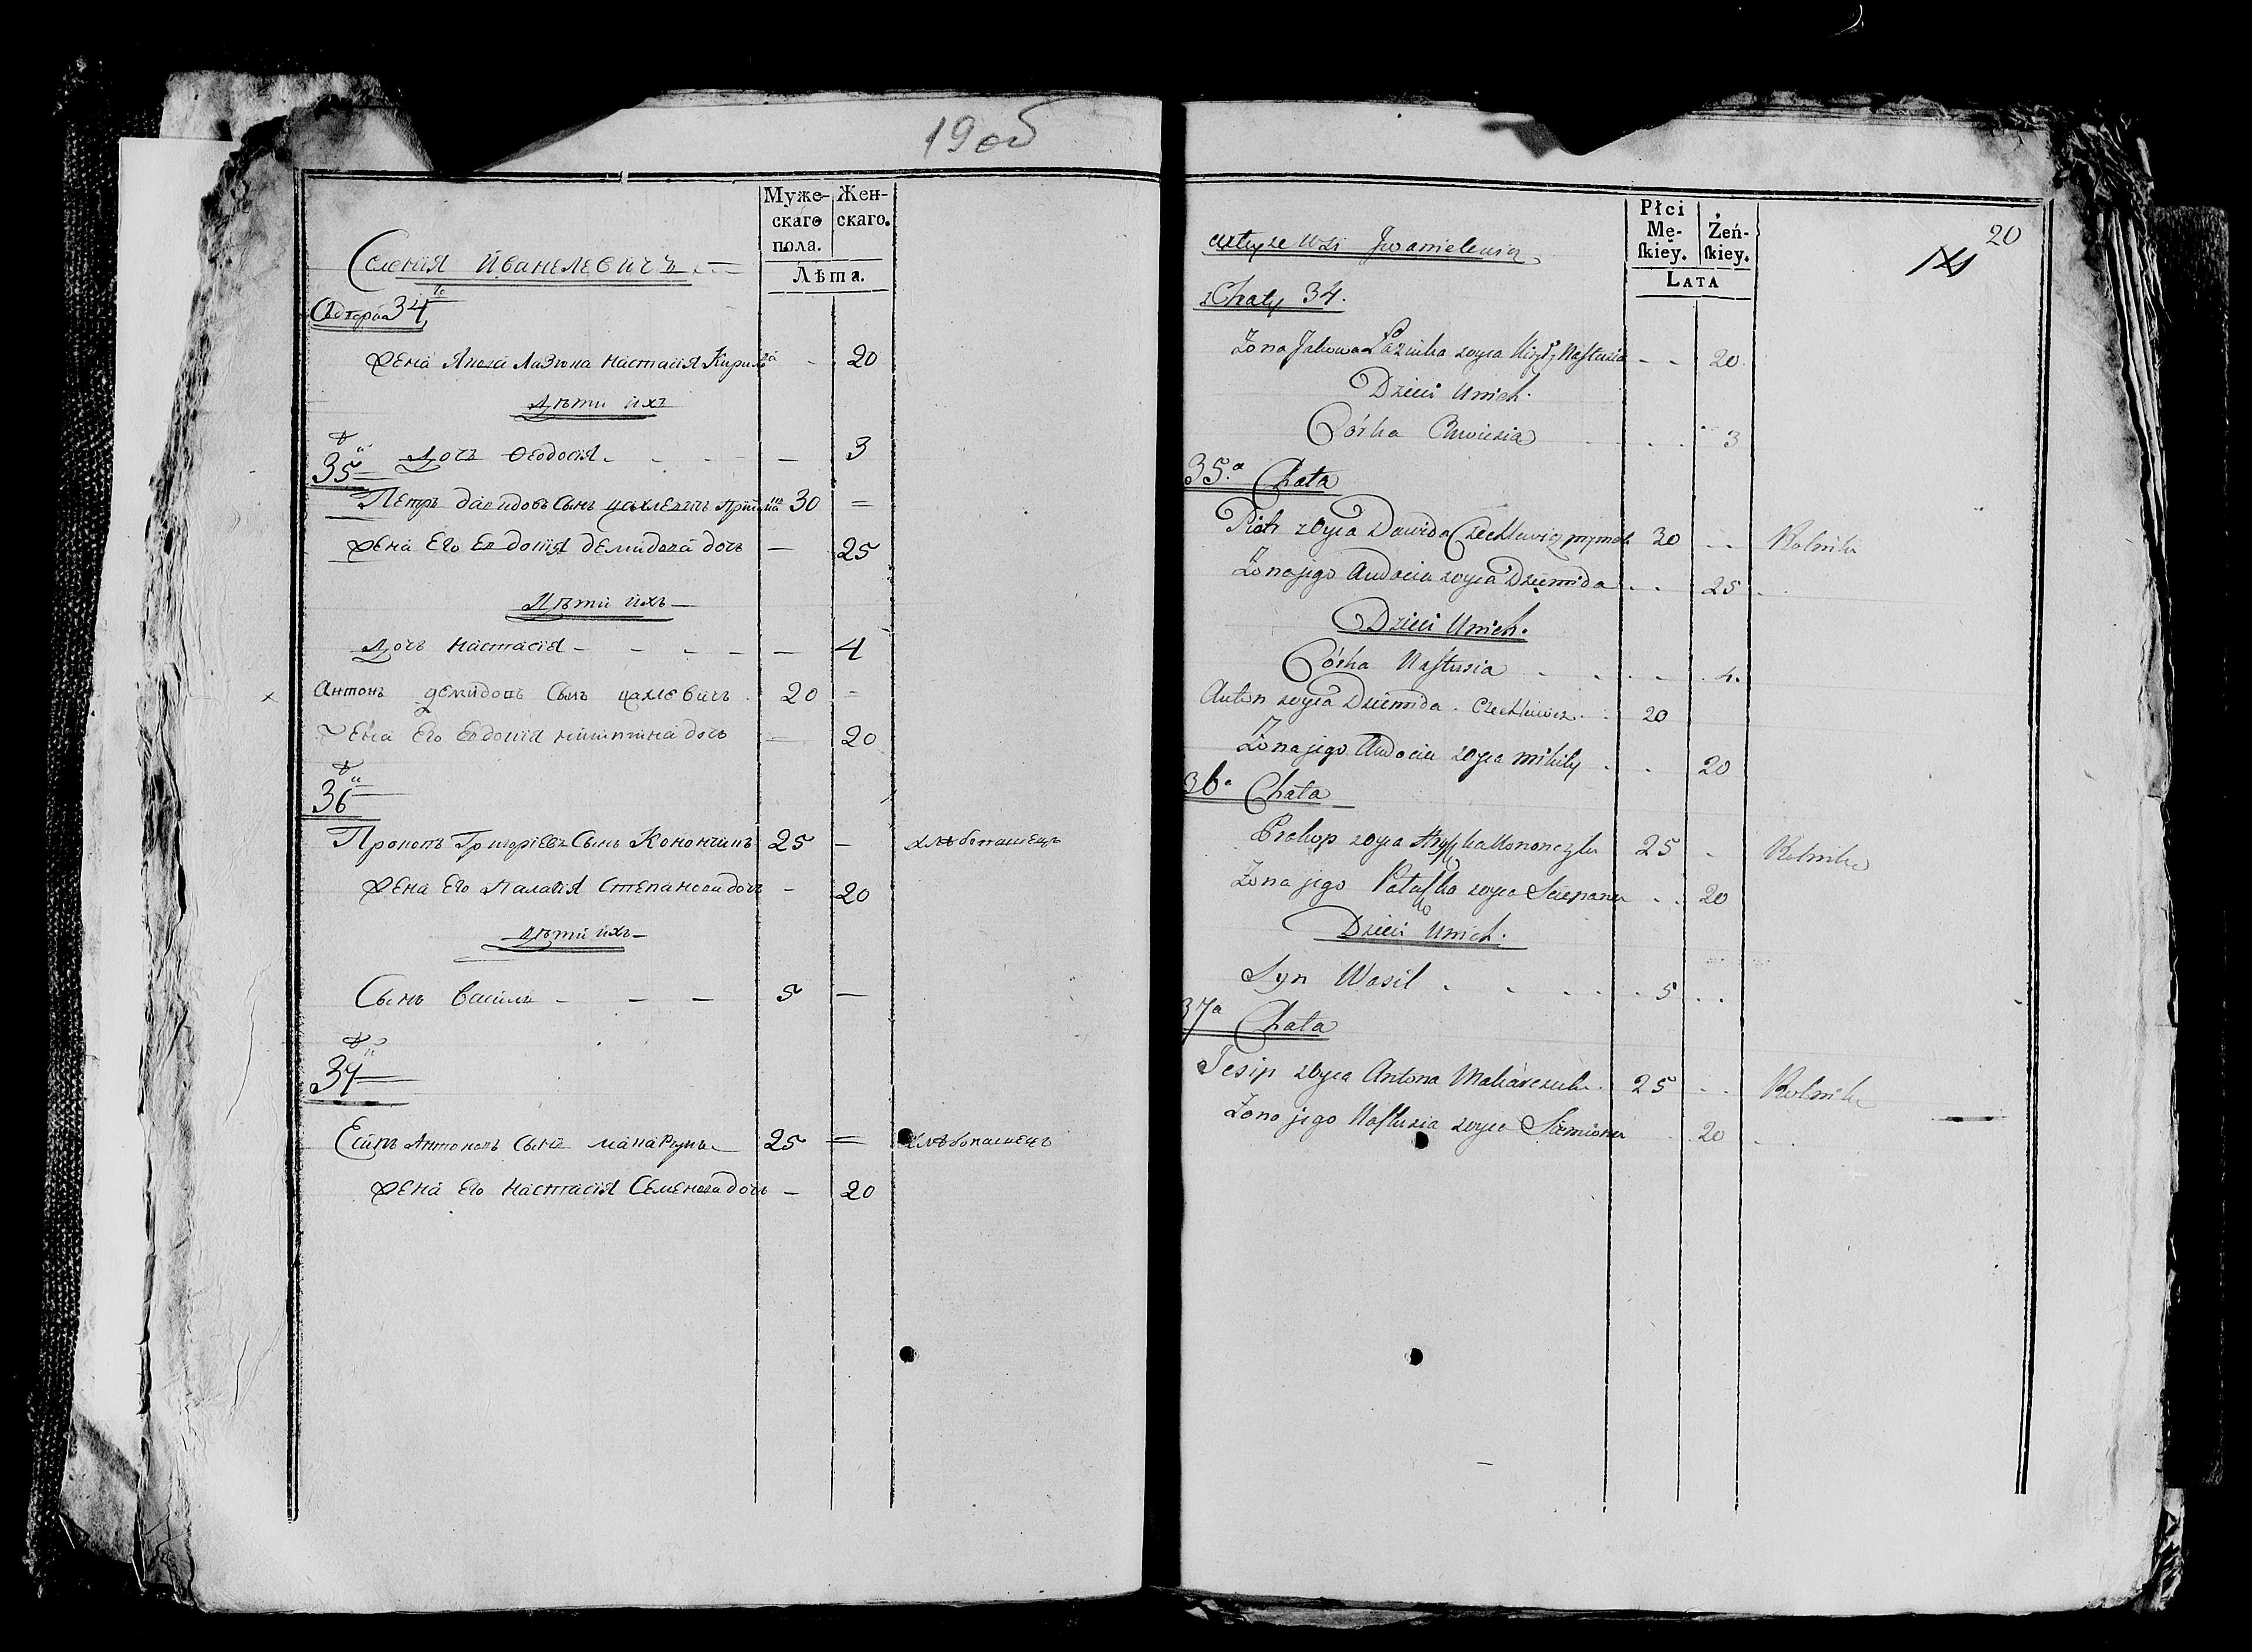 19 об
Муже- Жен-
скаго скаго.
пола.
Лѣта.
Селенія Иванелевичъ
Двора 34
Жена Якова Лазюка Настасія Кирилова - 20
Дѣти ихъ
Дочь Феодосія - - - 3
35
Петръ Давидовъ Сынъ Цахлевичъ 30 =
Жена Его Евдокія Демидова дочь — 25
Дѣти ихъ
Дочь Настасія - - - - - 4
× Антонъ Демидовъ Сынъ Цахлевичъ 20 -
Жена Его Евдокія Никитина дочь — 20
36
Прокопъ Григоріевъ Сынъ Конончикъ 25 — хлѣбопашецъ
Жена Его Палагія Степанова дочь - 20
Дѣти ихъ
Сынъ Василь - - - 5 —
37
Есипъ Антоновъ Сынъ 25 = хлѣбопашецъ
Жена Его Настасія Семенова дочь - 20
20
Płci
Mę- Żeń-
ſkiey. ſkiey.
LATA
wsi Jwanielewicz
z Chaty 34.
Żona Jakowa Łaziuka zoyca Kiryły Naſtazia - - 20
Dzieci Unich.
Córka Chwiesia . . . 3
35.a Chata
Piotr zOyca Dawida Czechlewicz prymak 30 - - Rolnik
Żona jego Audocia zoyca Dziemida . . 25
Dzieci Unich.
Córka Naſtazia . . . . 4.
Anton zoyca Dziemida Czechlewicz . . 20
Żona jego Audocia zoyca Mikity . . 20
36a Chata
Prokop zoyca Kononczyk 25 - Rolnik
Żona jego Pałaſka zoyca Sciepana . . 20
Dzieci Unich.
Syn Wasil . . . . 5 . .
37a Chata
Jesip zOyca Antona Makarczuk 25 - - Rolnik
Żona jego Naſtazia zoyca Siemiona . 20